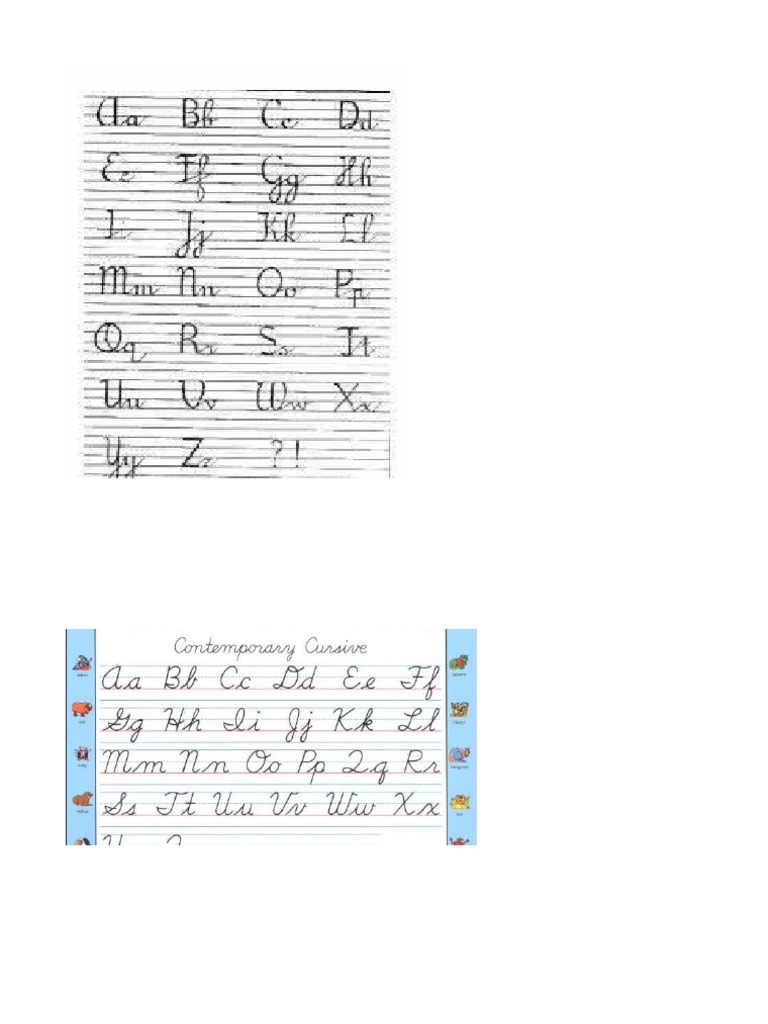 Aa Bb Cc Dd
Ee Ff Gg Hh
Ii Jj Kk Ll
Mm Nn Oo Pp
Qq Rr Ss Tt
Uu Vv Ww Xx
Yy Zz ? !
Contemporary Cursive
Aa Bb Cc Dd Ee Ff
Gg Hh Ii Jj Kk Ll
Mm Nn Oo Pp Qq Rr
Ss Tt Uu Vv Ww Xx